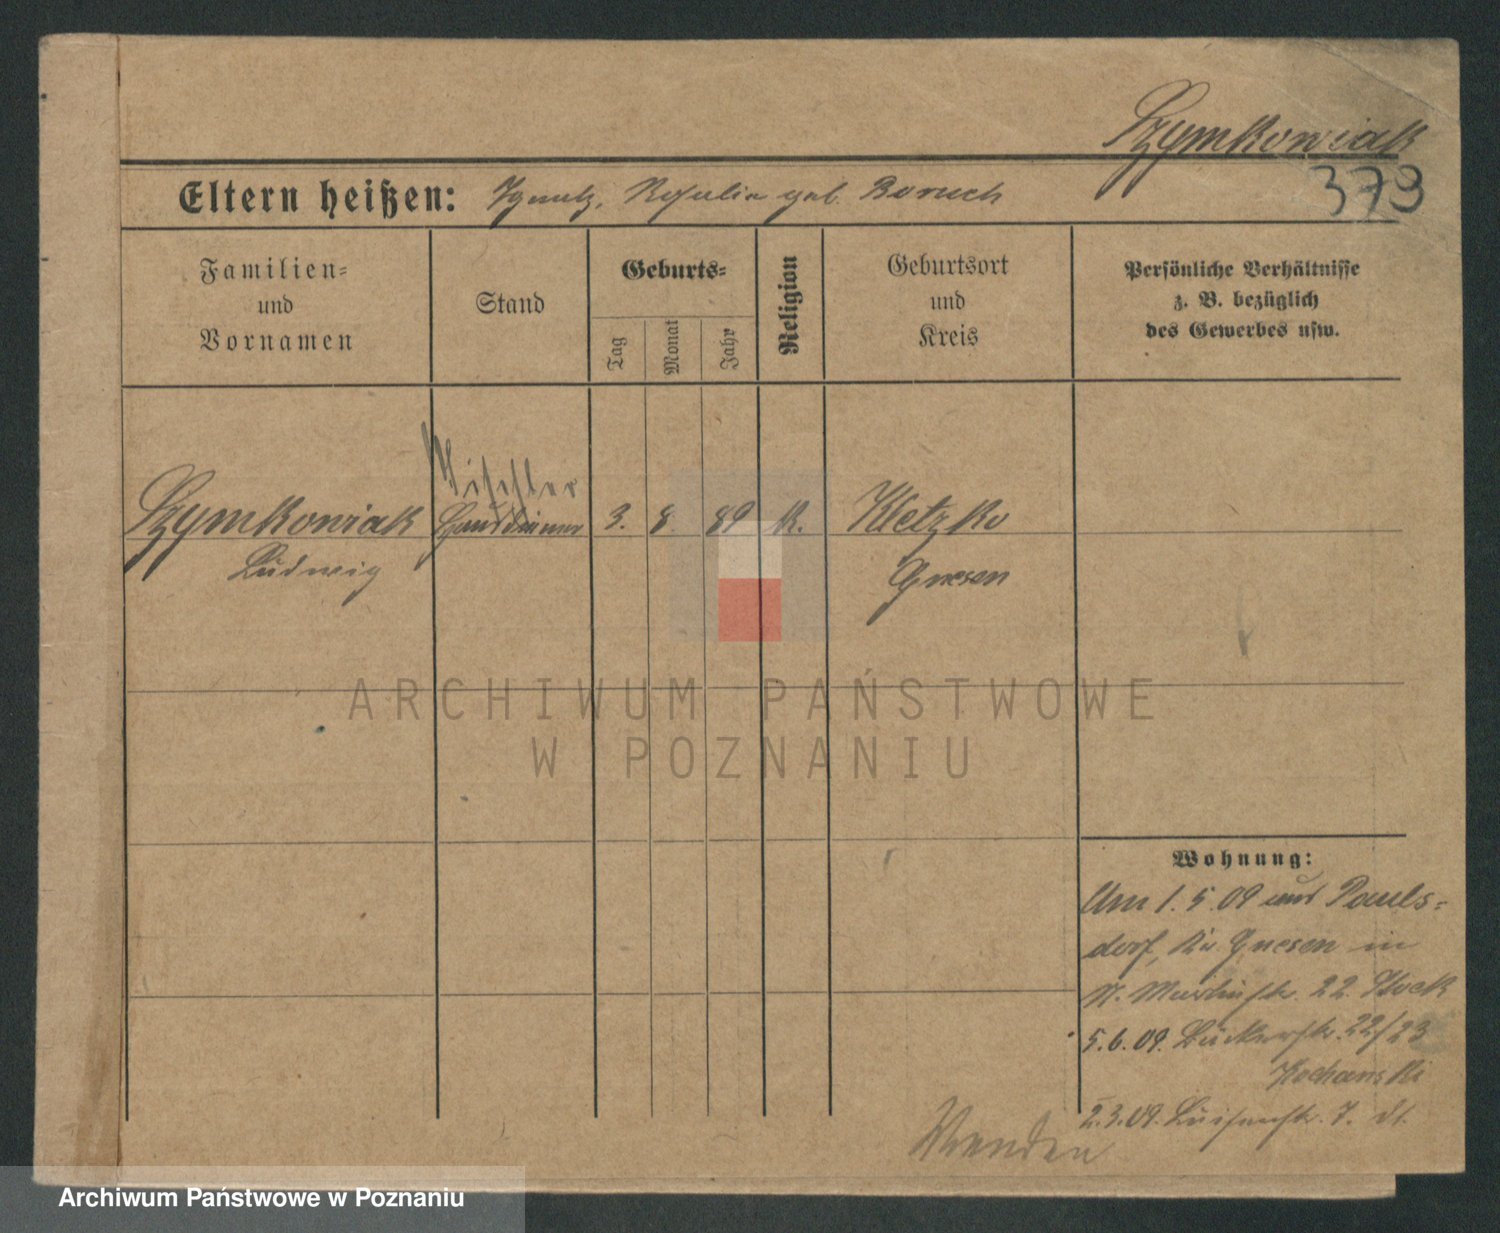 Szymkowiak
379
Eltern heißen: Ignatz, Rosalia geb. Boruch
Familien-
und
Vornamen
Stand
Geburts-
Tag
Monat
Jahr
Religion
Geburtsort
und
Kreis
Persönliche Verhältnisse
z. B. bezüglich
des Gewerbes usw.
Tischler
Szymkowiak Hausdiener 3. 8. 89 K. Kletzko
Ludwig Gnesen
ARCHIWUM PAŃSTWOWE
W POZNANIU
Wohnung:
Am 1. 5. 09 aus Pauls-
dorf, Kr. Gnesen in
St. Martinstr. 22. Stock
5.6.09. Bäckerstr. 22/23
Kochanski
2.3.09. Luisenstr. 7.
Wenden
Archiwum Państwowe w Poznaniu